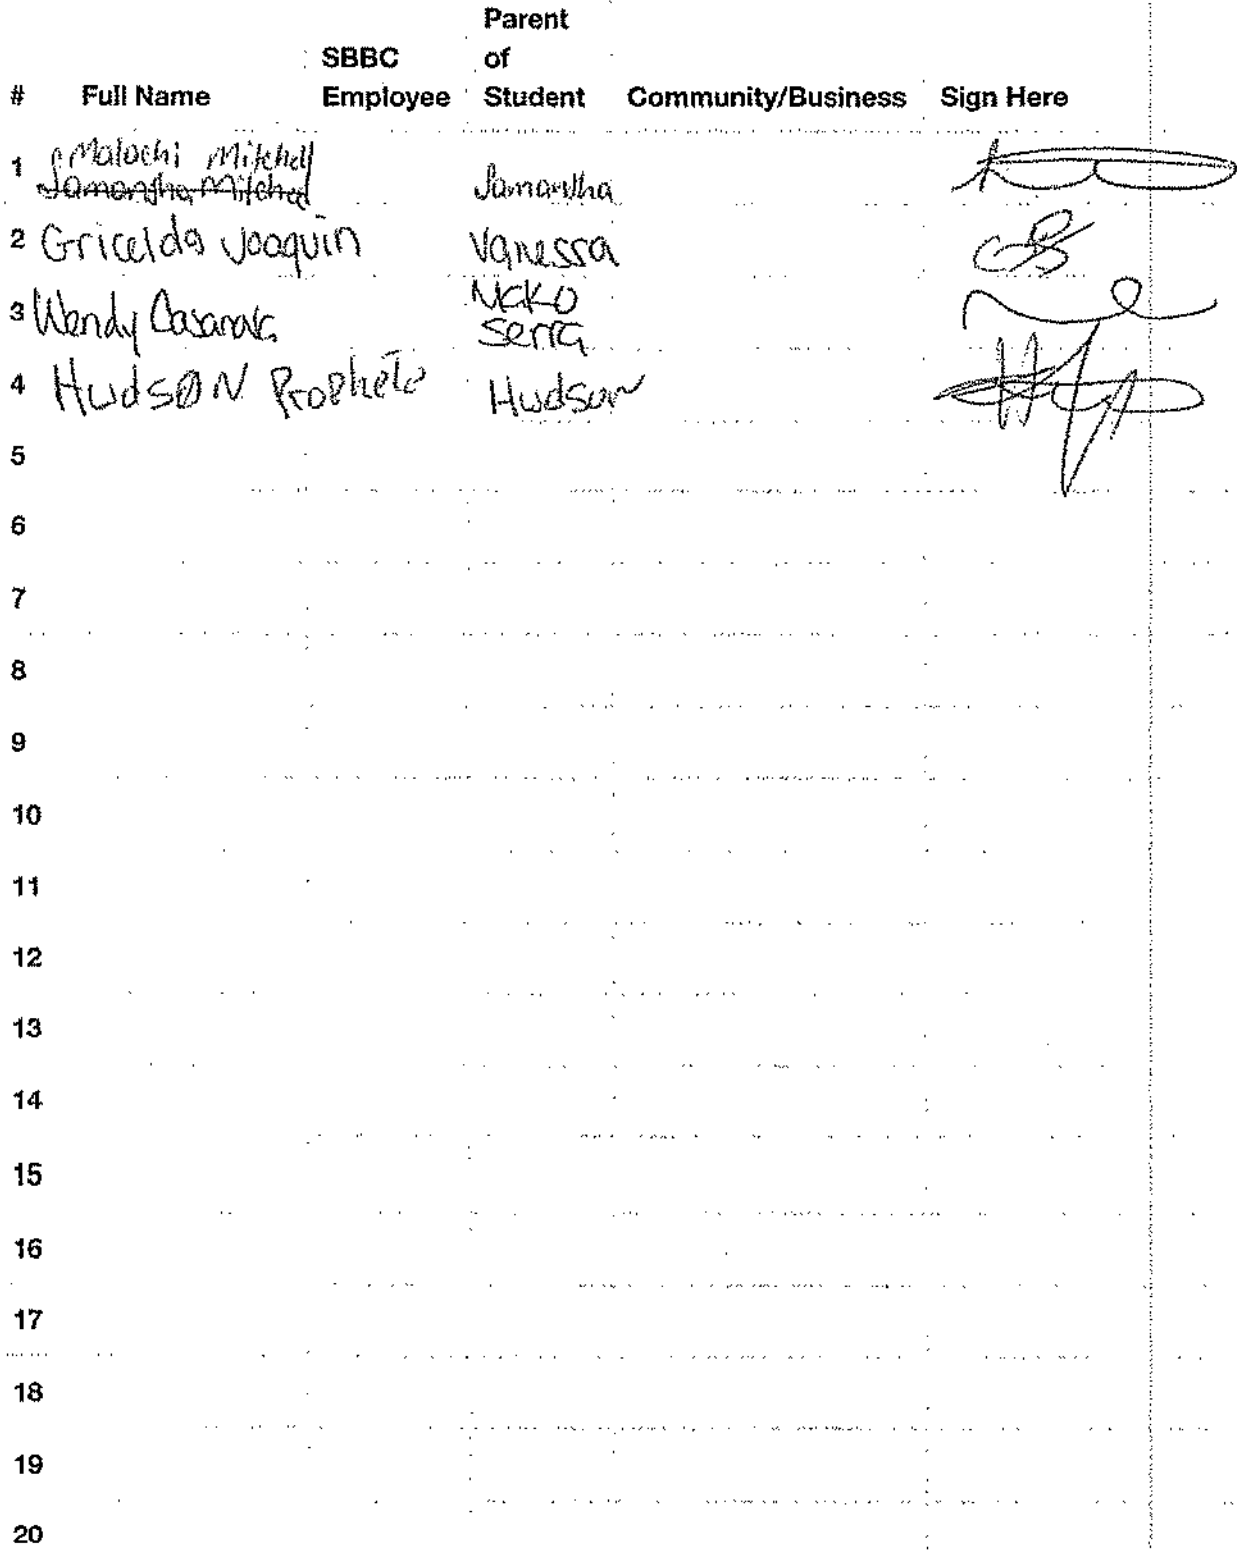 Parent
SBBC of
# Full Name Employee Student Community/Business Sign Here
1 Malachi Mitchell
Samantha Mitchell Samantha
2 Gricelda Joaquin Vanessa
3 Wendy Casanova Nicko
Serra
4 HudsON Propheto Hudson
5
6
7
8
9
10
11
12
13
14
15
16
17
18
19
20